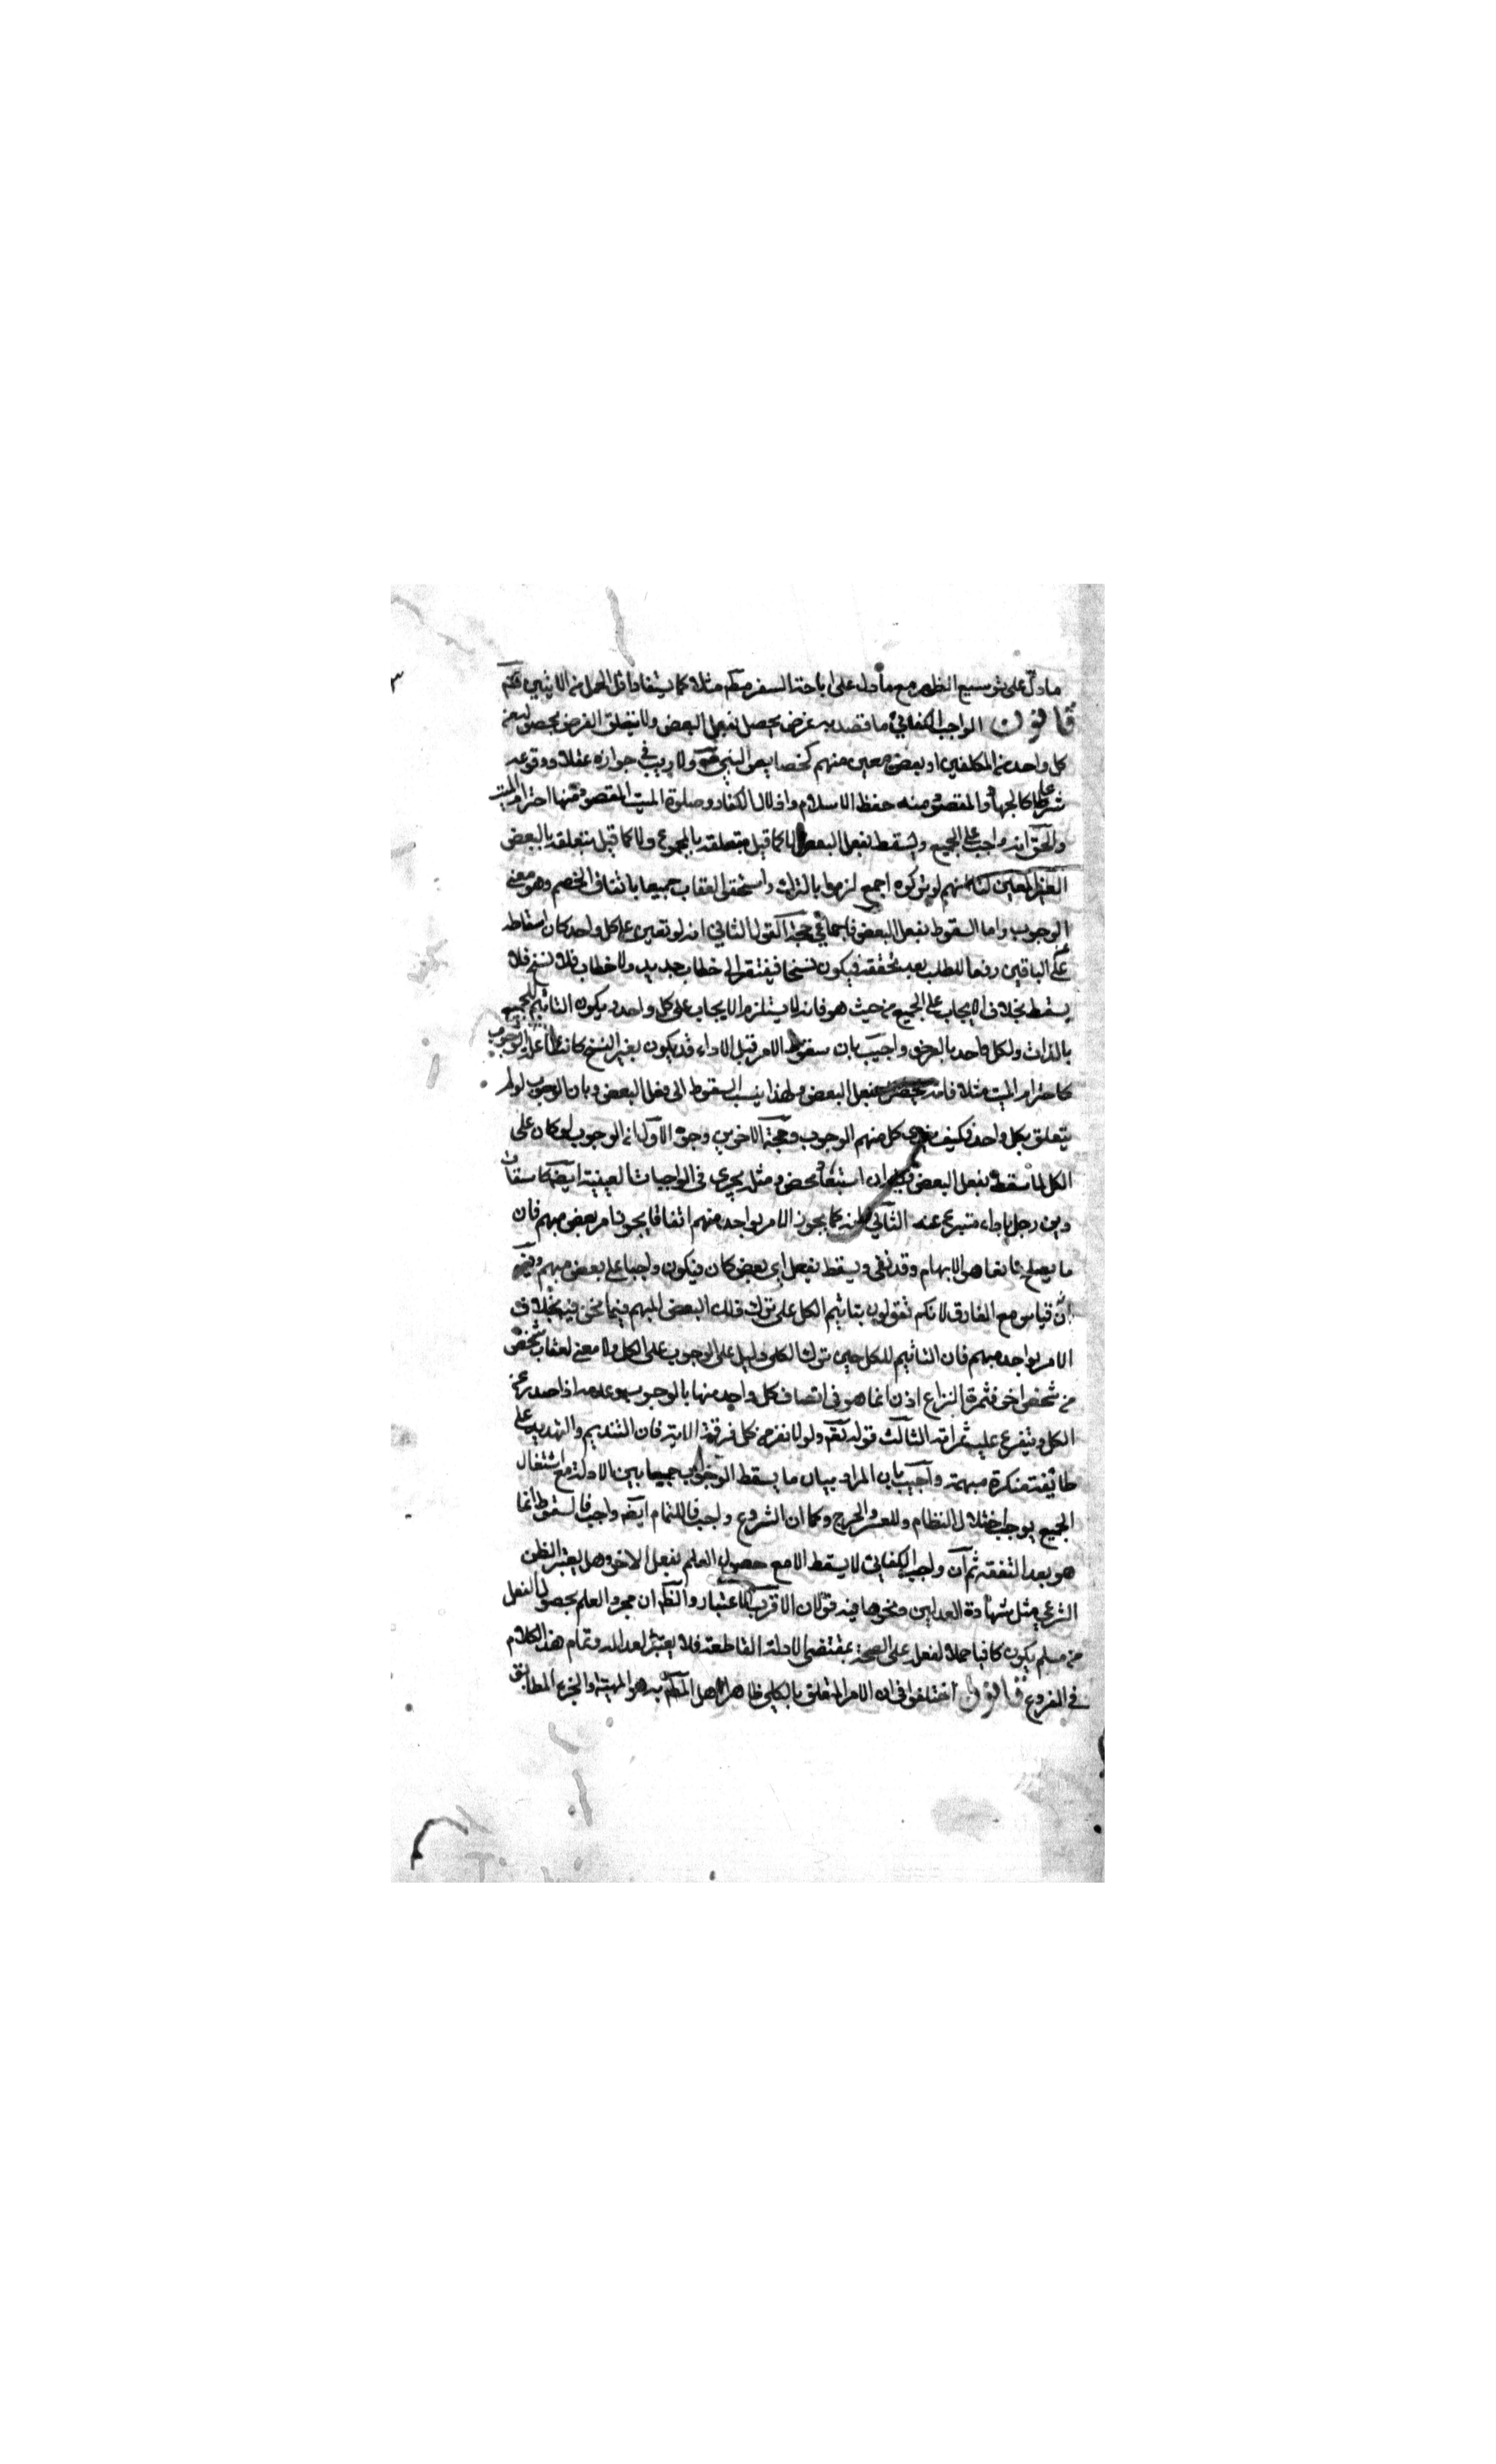 ما دل على توسيع الظهر مع ما دل على اباحة السفر مطلقا مثلا كما يستفاد اقل الحمل من الايتين
قانون الواجب الكفائي ما قصد به غرض يحصل بفعل البعض ولا يتعلق الغرض بحصوله من
كل واحد من المكلفين او بعض معين منهم كخصايص النبي ص ولا ريب في جوازه عقلا ووقوعه
شرعا كالجهاد والمقصود منه حفظ الاسلام واذلال الكفار وصلوة الميت المقصود منها احترام الميت
والحق انه واجب على الجميع ويسقط بفعل البعض لا كما قيل بتعلقه بالمجموع ولا كما قيل بتعلقه بالبعض
الغير المعين لنا انهم لو تركوه اجمع لزموا بالترك واستحقوا العقاب جميعا باتفاق الخصم وهو معنى
الوجوب واما السقوط بفعل البعض فاجماعي حجة القول الثاني انه لو تعين على كل واحد كان اسقاطه
عن الباقين رفعا للطلب بعد تحققه فيكون نسخا فيفتقر الى خطاب جديد ولا خطاب فلا نسخ فلا
يسقط بخلاف الايجاب على الجميع من حيث هو فانه لا يستلزم الايجاب على كل واحد ويكون التاثيم للجميع
بالذات ولكل واحد بالعرض واجيب بان سقوط الامر قبل الاداء قد يكون بغير النسخ كانتفاء علة الوجوب
كاحترام الميت مثلا فانه يحصل بفعل البعض ولهذا ينسب السقوط الى فعل البعض وبان الوجوب لو لم
يتعلق بكل واحد فكيف ينوي كل منهم الوجوب وحجة الاخرين وجوه الاول ان الوجوب لو كان على
الكل لما سقط بفعل البعض وفيه ان استبعاد محض ومثله يجري في الواجبات العينية ايضا كاسقاط
دين رجل باداء متبرع عنه الثاني انه كما يجوز الامر بواحد منهم اتفاقا يجوز امر بعض مبهم فان
ما يصلح مانعا هو الابهام وقد نفي ويسقط بفعل اي بعض كان فيكون واجبا على بعض مبهم وفيه
انه قياس مع الفارق لانكم تقولون بتاثيم الكل على ترك ذلك البعض المبهم فيما نحن فيه بخلاف
الامر بواحد مبهم فان التاثيم للكل حين ترك الكل دليل على الوجوب على الكل ولا معنى لعقاب شخص
من شخص اخر فثمرة النزاع اذن انما هو في اتصاف كل واحد منها بالوجوب وعدمه اذا صدر عن
الكل ويتفرع عليه ثمراته الثالث قوله تعالى ولولا نفر من كل فرقة الاية فان التنديم والتهديد على
طائفة منكرة مبهمة واجيب بان المراد بيان ما يسقط الوجوب جميعا بين الادلة مع اشتغال
الجميع يوجب اختلال النظام وللعسر والحرج وكما ان الشروع واجب فالاتمام ايضا واجب فالسقوط انما
هو بعد التفقه ثم ان واجب الكفائي لا يسقط الا مع حصول العلم بفعل الاخر وهل يعتبر الظن
الشرعي مثل شهادة العدلين ونحوها فيه قولان الاقرب الاعتبار والظ ان مجرد العلم بحصول الفعل
من مسلم يكون كافيا حملا لفعله على الصحة بمقتضى الادلة القاطعة فلا يعتبر العدالة وتمام هذا الكلام
في الفروع قانون اختلفوا في ان الامر المتعلق بالكلي ظاهرا هل المطلوب به هو المهية او الجزء المطابق